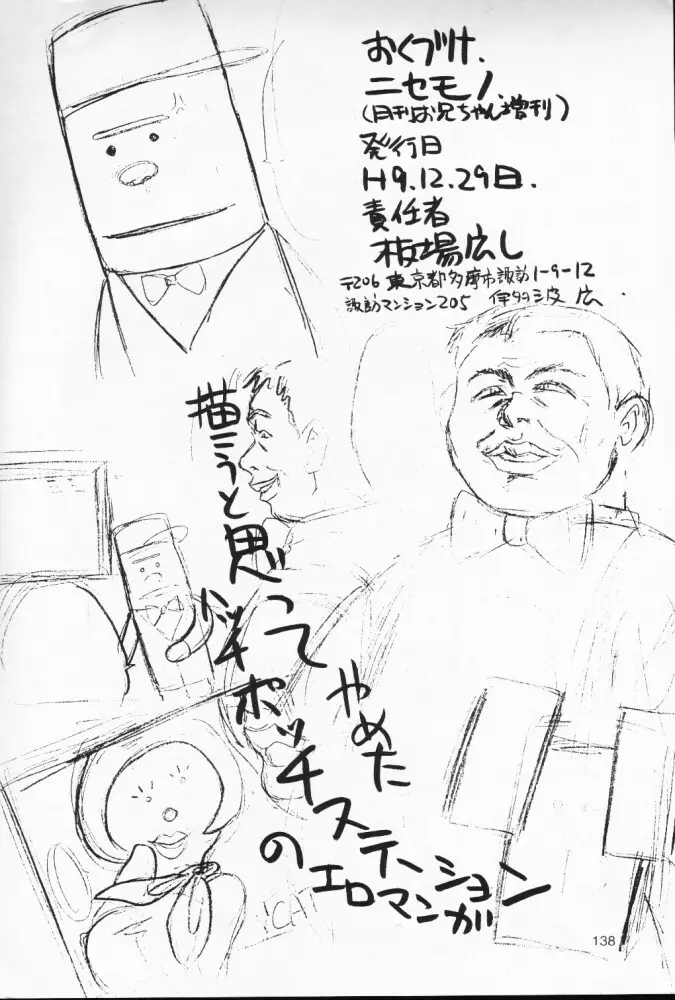 おくづけ.
ニセモノ.
(月刊お兄ちゃん増刊)
発行日
H9.12.29日.
責任者
板場広し
〒206 東京都多摩市諏訪1-9-12
諏訪マンション205 伊多波 広.
描こうと思って
やめた
ハッチポッチステーション
の
エロマンガ
ICHI
138